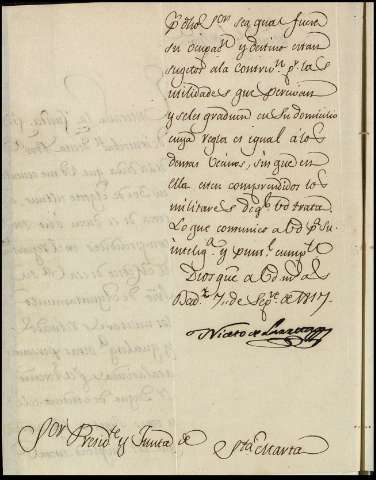 sea qual fuere
su ocupac.n y destino estan
sugetos a la contribu.n p.r las
utilidades que percivan
y se les graduen en su dominio
cuya regla es igual á los
demas Vecinos, sin que en
ella esten comprendidos los
militares de q.e Vd trata.
Lo que comunico a Vd p.a su
intelig.a y punt.l cumpl.to
Dios gue a Vd m.s a.s
7,, de Sep.re de 1817.
Niceto de
Sor Presid.te y Junta de Sta Marta